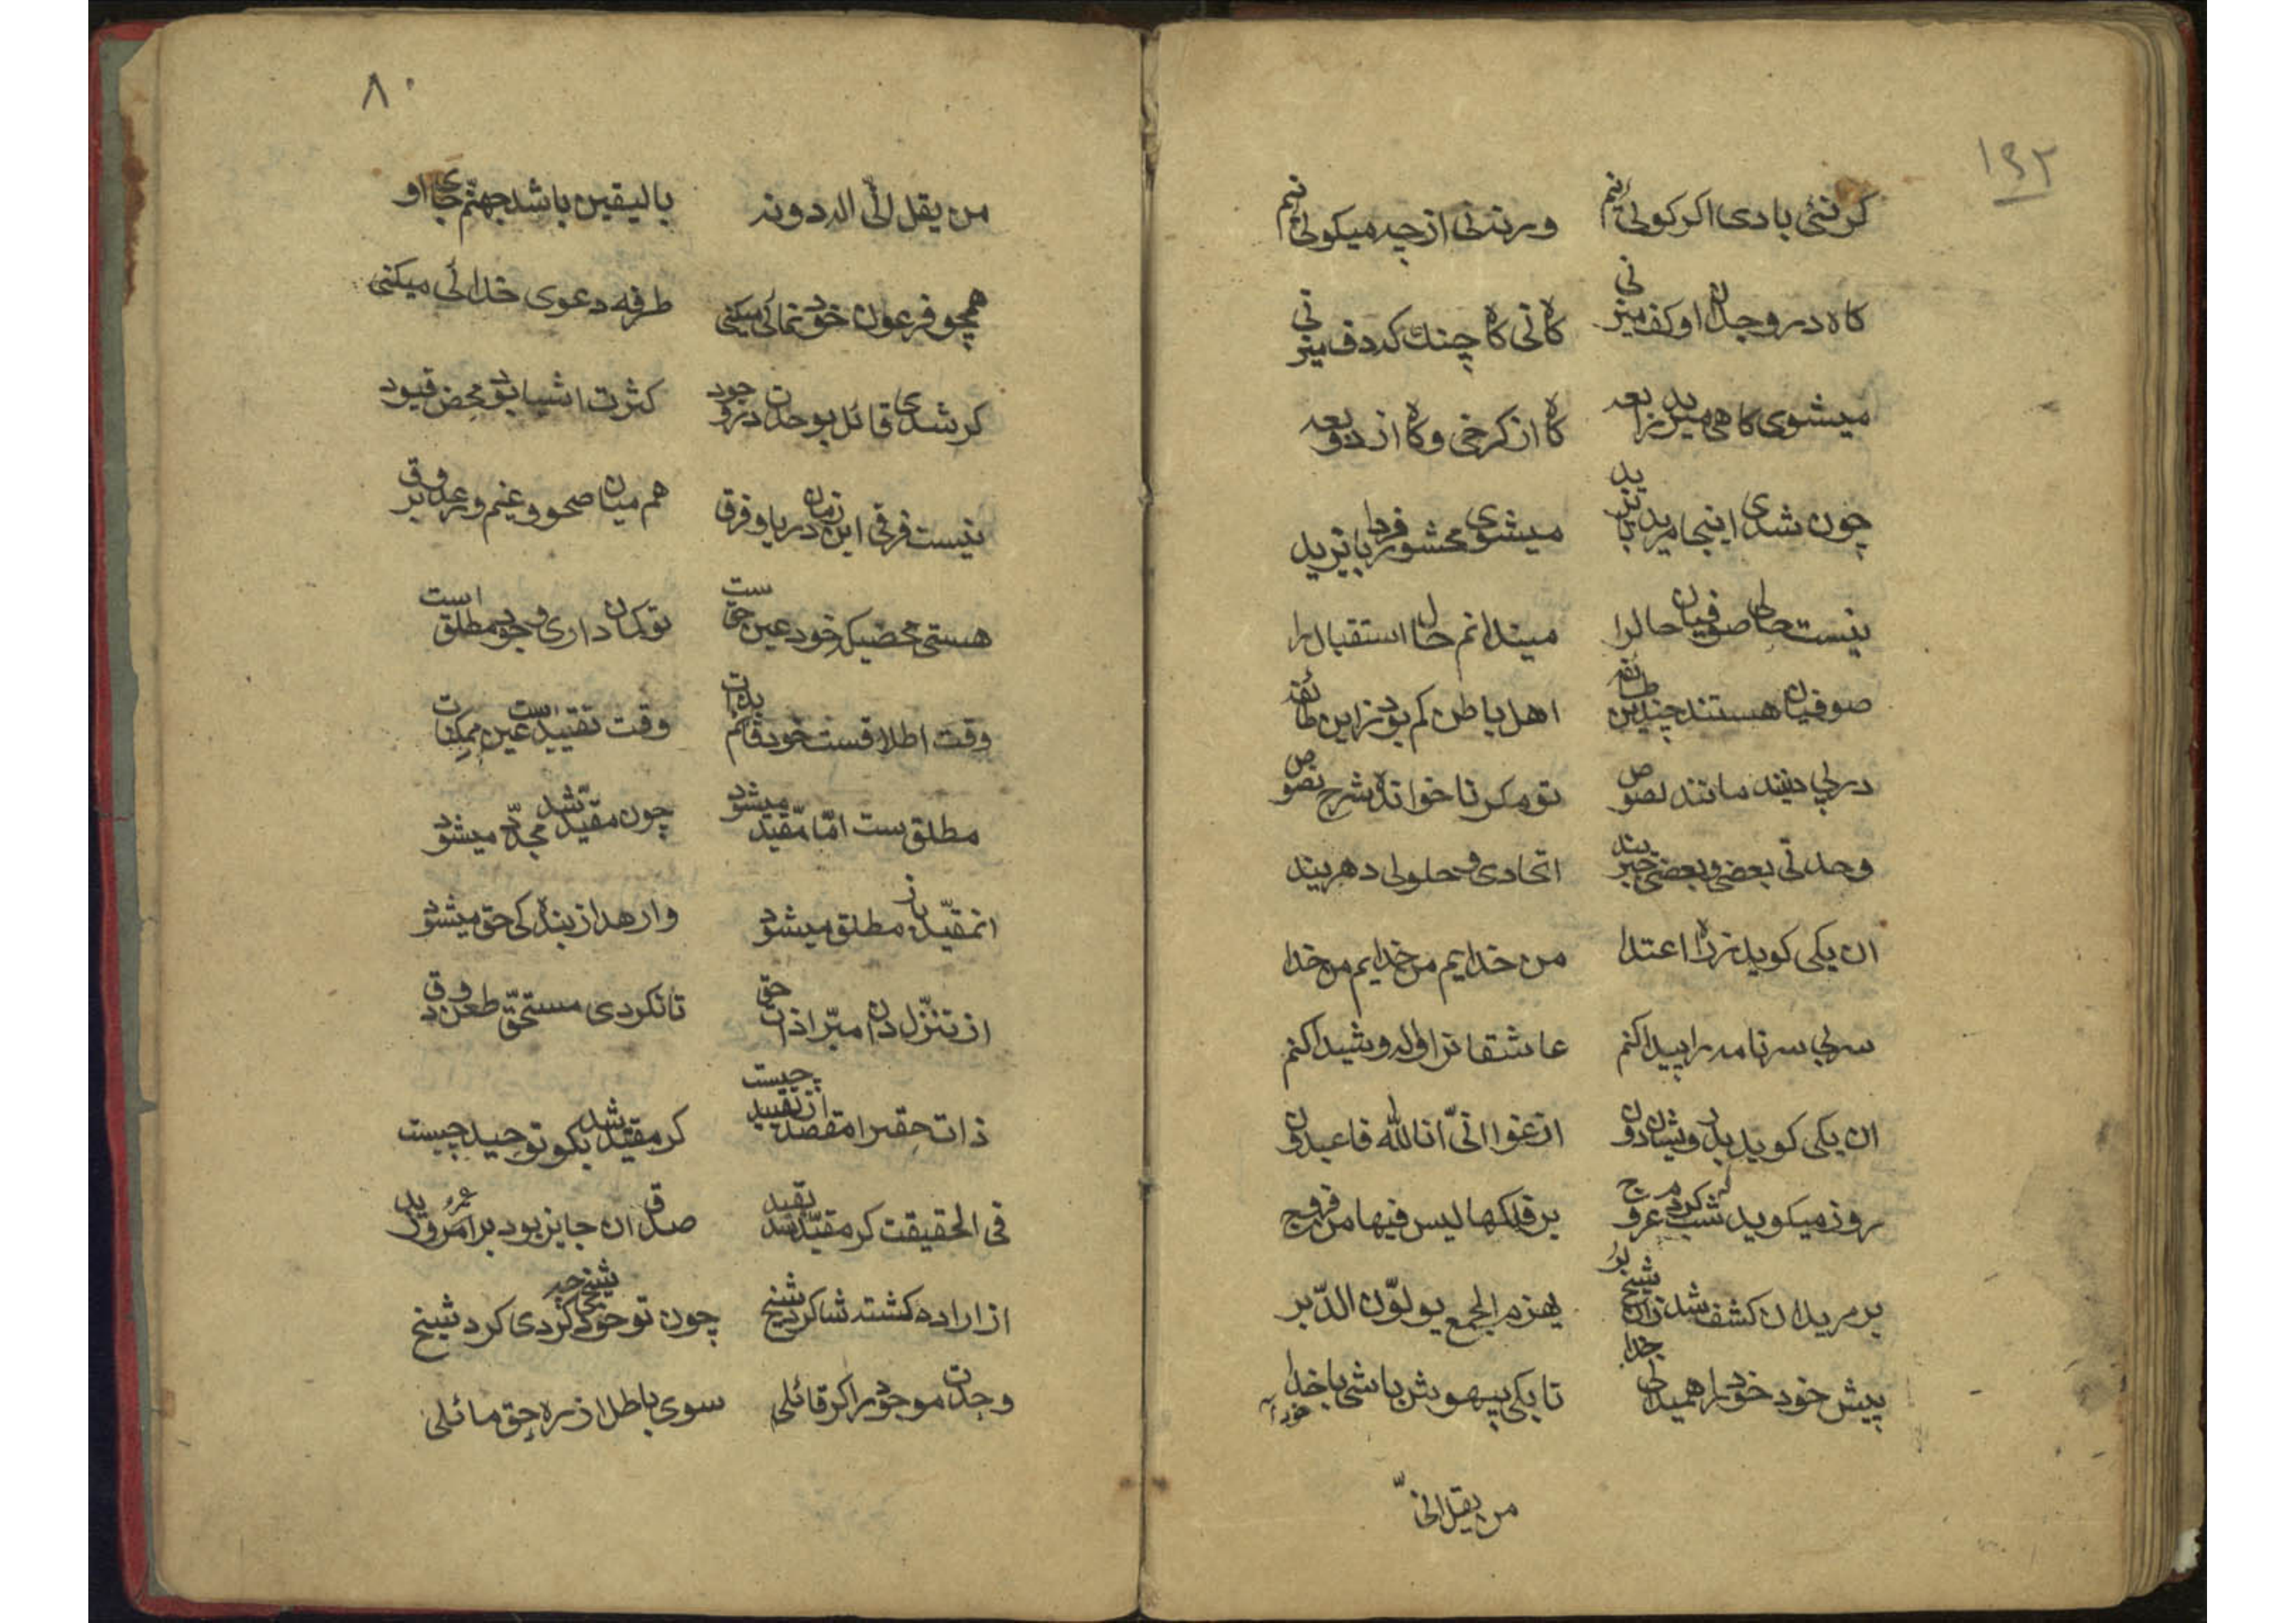 ١٤٢
کر نئی بادی اکر کوئی نیم ورنه نی از چه میکوئی نیم
کاه در وجدان او کف میزنی کاه نی کاه چنك که دف میزنی
میشوی کاهی مرید رابعه کاه از کرخی و کاه از دوبعه
چون شدی اینجا مرید بایزید میشوی محشور فردا بایزید
نیست حالی صوفیان حالرا میندانم حال استقبال را
صوفیان هستند چندین طائفه اهل باطن کم بود زاین طائفه
در پی دینند مانند لصوص تو مکر ناخوانده شرح نصوص
وحدتی بعضی و بعضی جبریند اتحادی و حلولی دهریند
ان یکی کوید ز راه اعتدا من خدایم من خدایم من خدا
سر بی سر نامه را پیدا کنم عاشقانرا واله و شیدا کنم
ان یکی کوید بدرویشان دون انی انا الله فاعبدون
روز میکوید که شب کردم عروج بر فلکها لیس فیها من فروج
بر مریدان کشف شد زان شیخ بر یهزم الجمع یولّون الدّبر
پیش خود خود را همیدانی خدا تا بکی بیهوش باشی با خدا
خود آ
من یقل انیّ
٨٠
من یقل انّی اله دونه بالیقین باشد جهنّم جای او
همچو فرعون خود نمائی میکنی طرفه دعوی خدائی میکنی
کر شدی قائل بوحدت در وجود کثرت اشیا بود محض قیود
نیست فرقی این زمان در یا و فرق هم میان صحو و غیم و رعد و برق
هستی محضیکه خود عین حق ست تو کمان داری وجود مطلق است
وقت اطلاقست خود قائم بذات وقت تقیید است عین ممکنات
مطلق ست امّا مقیّد میشود چون مقیّد شد مجدّد میشود
ان مقیّد باز مطلق میشود وارهد از بندکی حق میشود
از تنزّل دان مبّرا ذات حق تا نکردی مستحقّ طعن و دق
ذات حقرا مقصد از تقیید چیست کر مقیّد شد بکو توحید چیست
فی الحقیقت کر مقیّد شد بقید صدق ان جایز بود بر عمرو و زید
از اراده کشته شاکرد شیخ چون تو خود کردی کرد شیخ
وحدت موجود را کر قائلی سوی باطل از ره حق مائلی